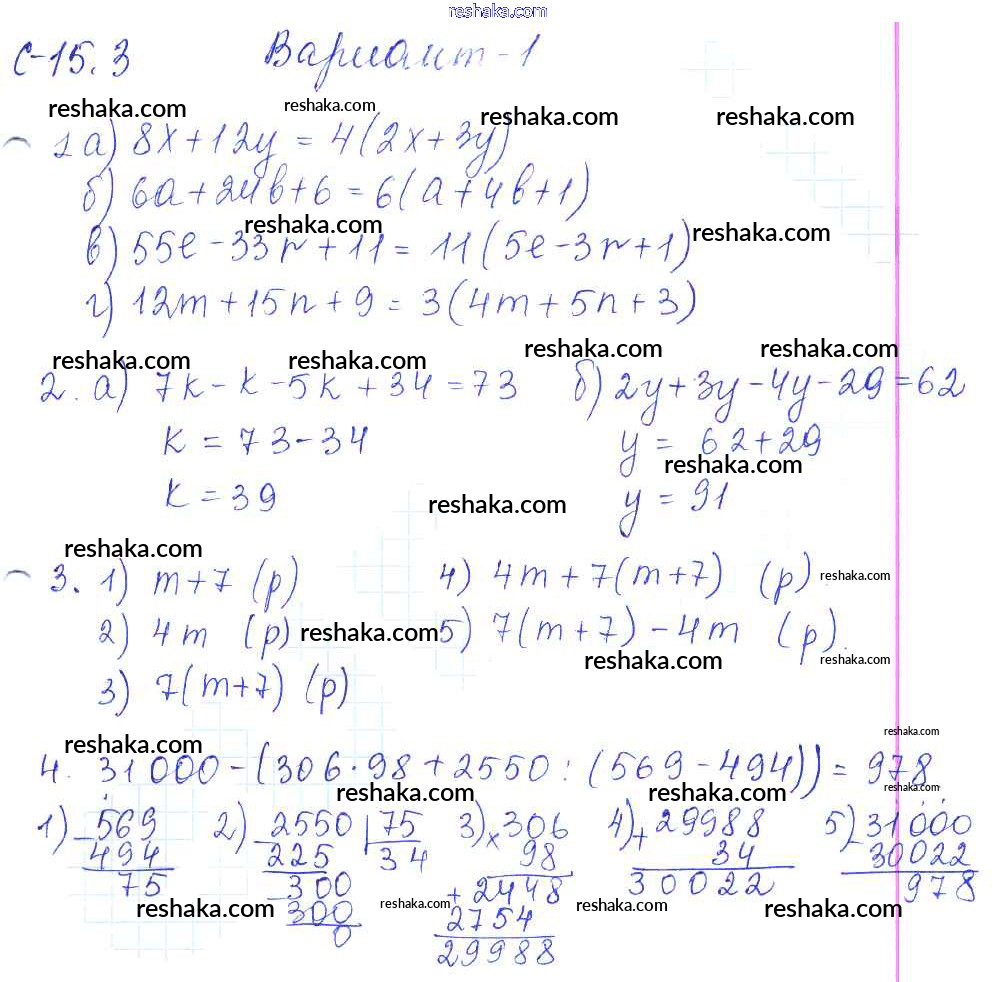 reshaka.com
С-15.3 Вариант-1
reshaka.com reshaka.com reshaka.com reshaka.com
1 а) 8x+12y = 4(2x+3y)
б) 6a+24b+6 = 6(a+4b+1)
reshaka.com reshaka.com
в) 55l-33n+11 = 11(5l-3n+1)
г) 12m+15n+9 = 3(4m+5n+3)
reshaka.com reshaka.com reshaka.com reshaka.com
2. а) 7k-k-5k+34=73 б) 2y+3y-4y-29=62
k = 73-34 y = 62+29
reshaka.com
k = 39 y = 91
reshaka.com
reshaka.com
3. 1) m+7 (р) 4) 4m+7(m+7) (р) reshaka.com
2) 4m (р) reshaka.com 5) 7(m+7)-4m (р).
reshaka.com reshaka.com
3) 7(m+7) (р)
reshaka.com reshaka.com
4. 31000-(306·98+2550:(569-494))=978
reshaka.com reshaka.com reshaka.com
1) -569 2) -2550 |75 3) ×306 4) +29988 5) -31000
494 225 34 98 34 30022
75 -300 +2448 30022 978
300 2754
0 29988
reshaka.com reshaka.com reshaka.com reshaka.com